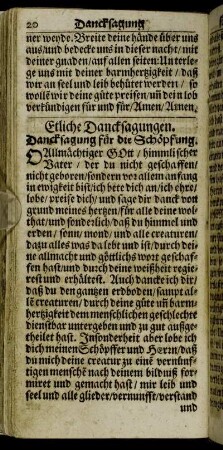 20 Dancksagung
ner weyde. Breite deine hände über uns
aus/und bedeckt uns in dieser nacht/mit
deiner gnaden/auf allen seiten: Unterle-
ge uns mit deiner barmhertzigkeit/ daß
wir an seel und leib behütet werden/ so
wollē wir deine güte preisen/uñ dein lob
verkündigen für und für/Amen/Amen.
Etliche Dancksagungen.
Dancksagung für die Schöpfung.
O Allmächtiger GOtt/ himmlischer
Vater/ der du nicht geschaffen/
nicht geboren/sondern vor allem anfang
in ewigkeit bist/ich bete dich an/ich ehre/
lobe/ preise dich/ und sage dir danck von
grund meines hertzen/für alle deine wol-
that/und sonderlich/daß du himmel und
erden/ sonn/ mond/ und alle creaturen/
dazu alles was da lebt und ist/durch dei-
ne allmacht und göttlichs wort geschaf-
fen hast/und durch deine weißheit regie-
rest und erhältest. Auch dancke ich dir/
daß du den gantzen erdboden/ sampt al-
lē creaturen/ durch deine güte uñ barm-
hertzigkeit dem menschlichen geschlechte
dienstbar untergeben und zu gut außge-
theilet hast. Insonderheit aber lobe ich
dich meinen Schöpffer und HErrn/daß
du mich deine creatur zu einē vernünf-
tigen menschē nach deinem bildnuß for-
miret und gemacht hast/ mir leib und
seel und alle glieder/vernunfft/verstand
und